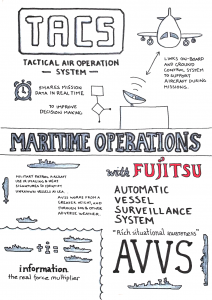 TACS
TACTICAL AIR OPERATION
SYSTEM
SHARES MISSION
DATA IN REAL TIME
TO IMPROVE
DECISION MAKING
LINKS ON-BOARD
AND GROUND
CONTROL SYSTEM
TO SUPPORT
AIRCRAFT DURING
MISSIONS.
MARITIME OPERATIONS
with FUJITSU
MILITARY PATROL AIRCRAFT
UNKNOWN VESSELS AT SEA.
AVVS WORKS FROM A
GREATER HEIGHT, AND
THROUGH FOG & OTHER
ADVERSE WEATHER.
AUTOMATIC
VESSEL
SURVEILLANCE
SYSTEM
"Rich situational awareness"
AVVS
information
the real force multiplier